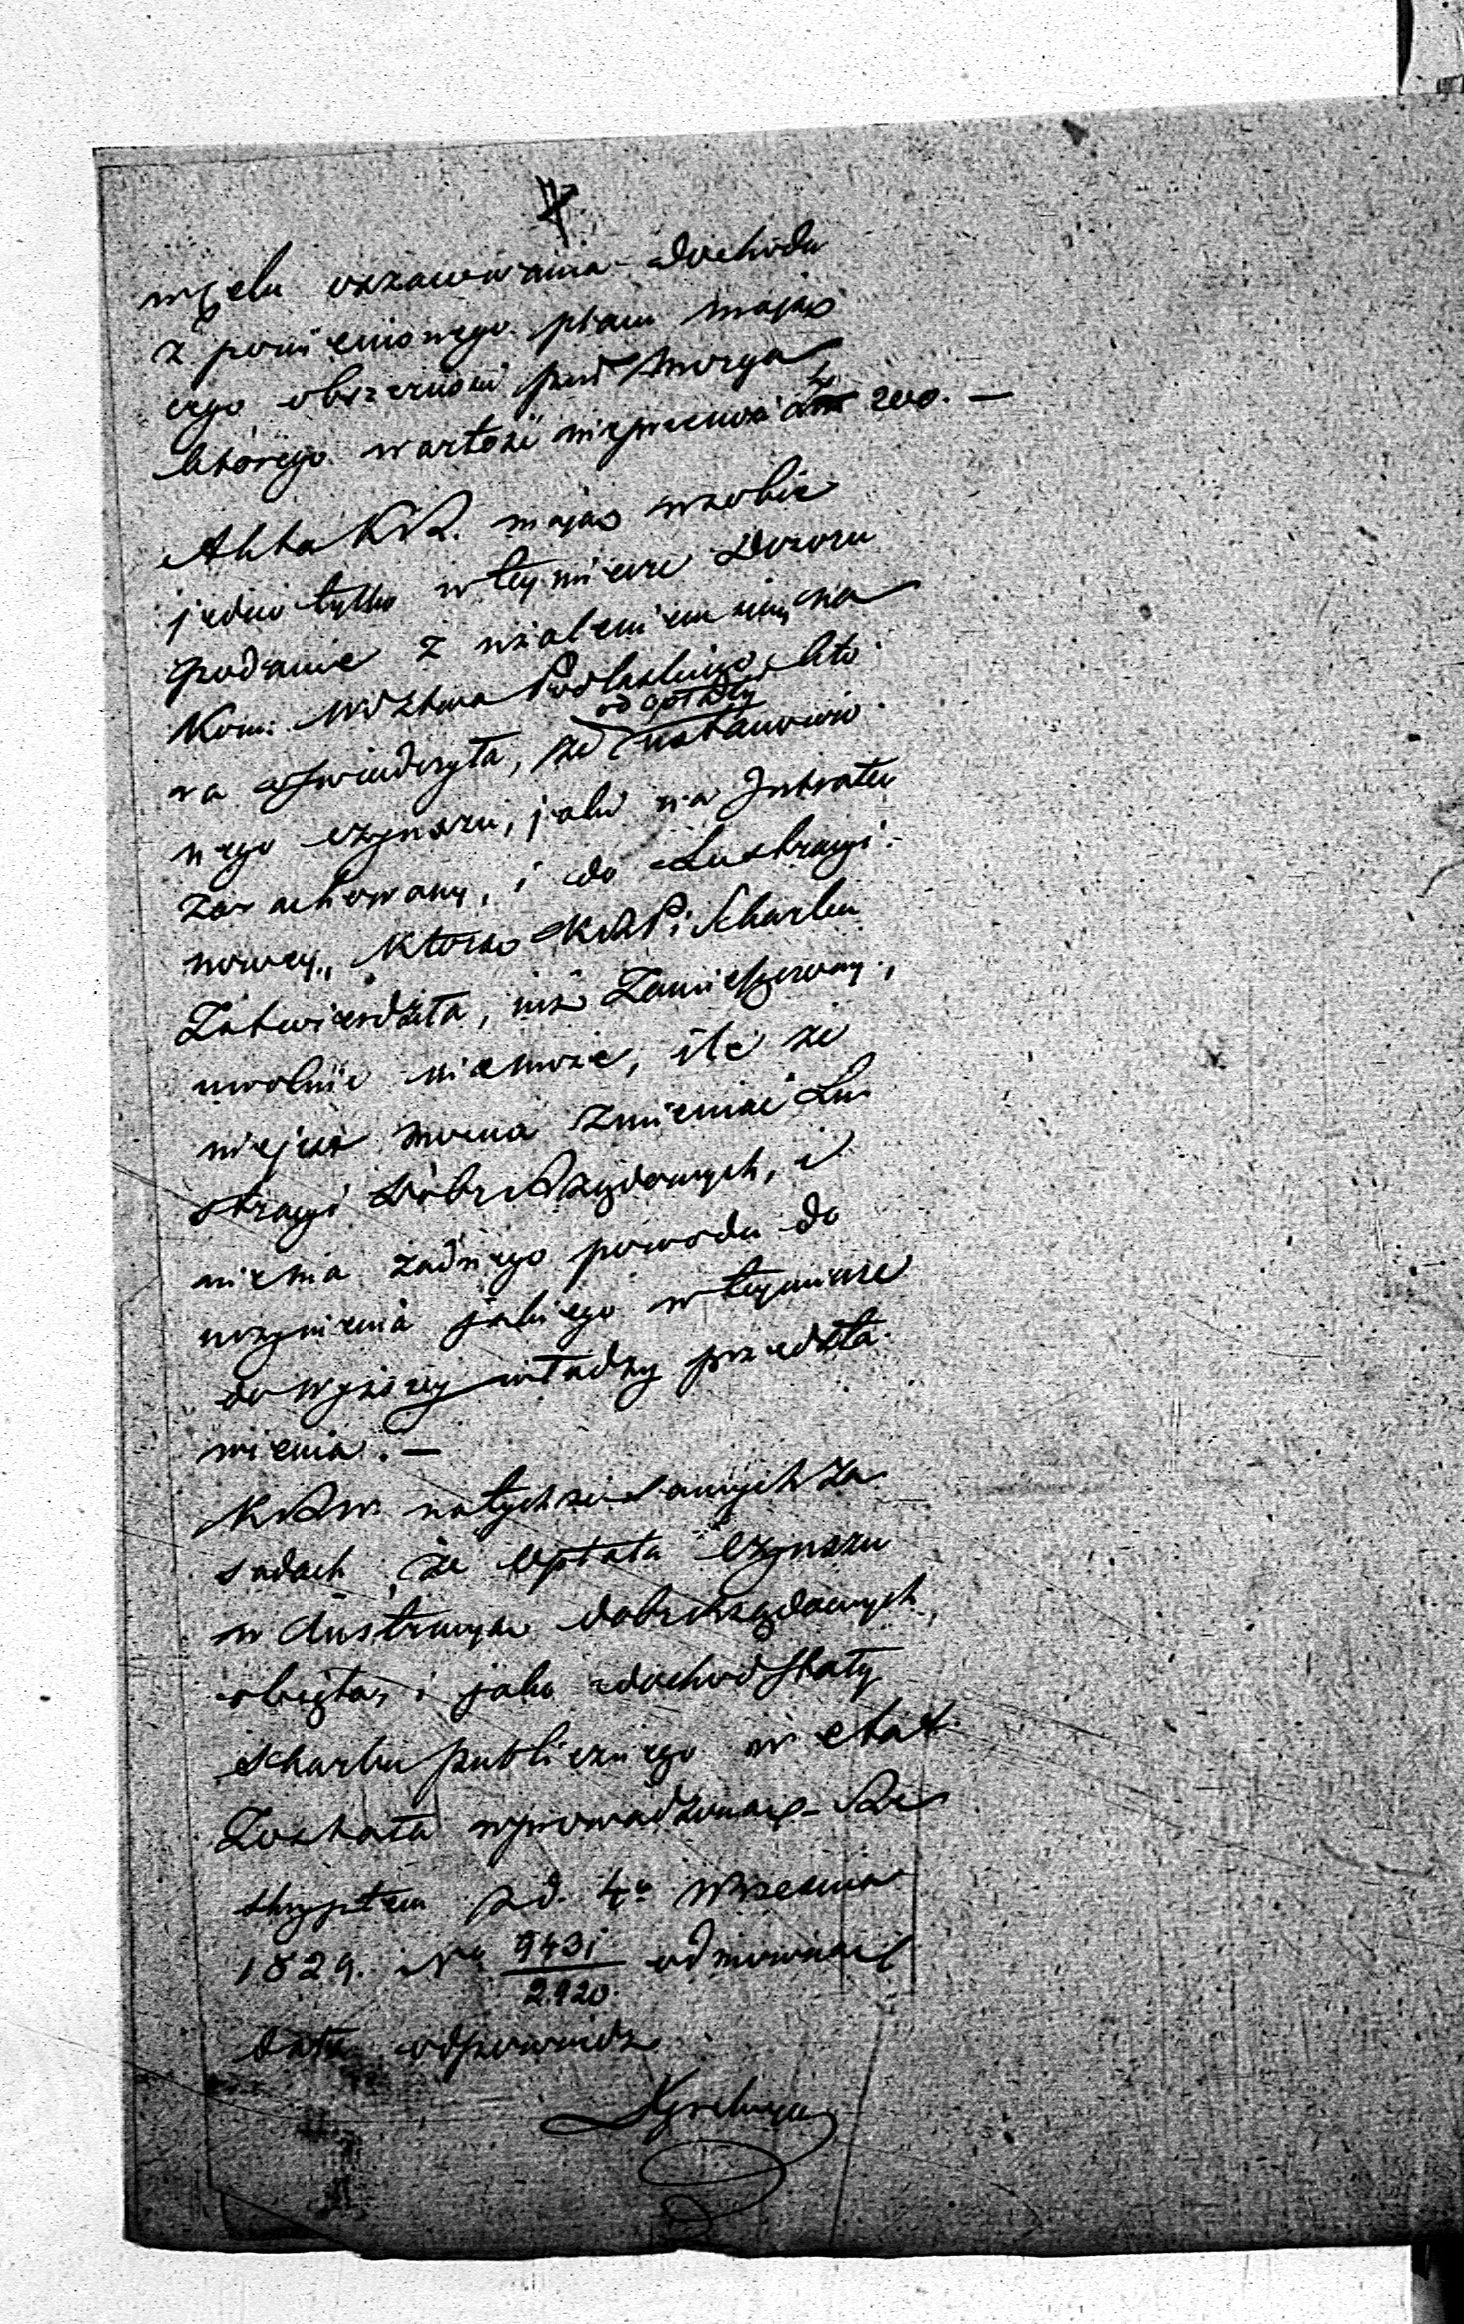 w celu oszacowania dochodu
z pomienionego placu mając
ego obszerności pręt morga
którego wartość nieprzenosi 200. —
Akta KR. mając w sobie
jedno tylko w tey mierze Dozoru
podanie z użaleniem się na
Kom: Wdztwa Podlaskiego, któ-
ra oświadczyła, że od opłaty ustanowio-
nego czynszu, jako na Intratę
zarachowany, i do Lustracyi
nowey, którą KRPi Skarbu
Zatwierdziła, już Zamieszczony,
uwolnić niemoże, ile że
niejest mocna zmieniać Lu-
stracyi Dóbr Rządowych, i
niema żadnego powodu do
uczynienia jakiego w teymierze
do wyższey władzy przedsta-
wienia. —
KRW. na tychże samych za-
sadach, że opłata czynszu
w Lustracyą dobr rządowych
obięta, i jako dochod stały
skarbu publicznego w etat
Została wprowadzona, Re-
skryptem z d. 4o Września
1829. No 9431/2920 odmowną
dała odpowiedź